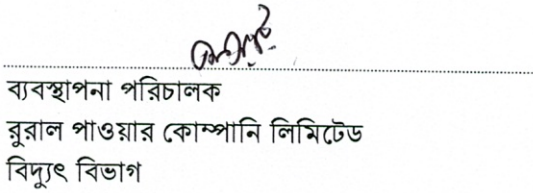 ব্যবস্থাপনা পরিচালক
রুরাল পাওয়ার কোম্পানি লিমিটেড
বিদ্যুৎ বিভাগ